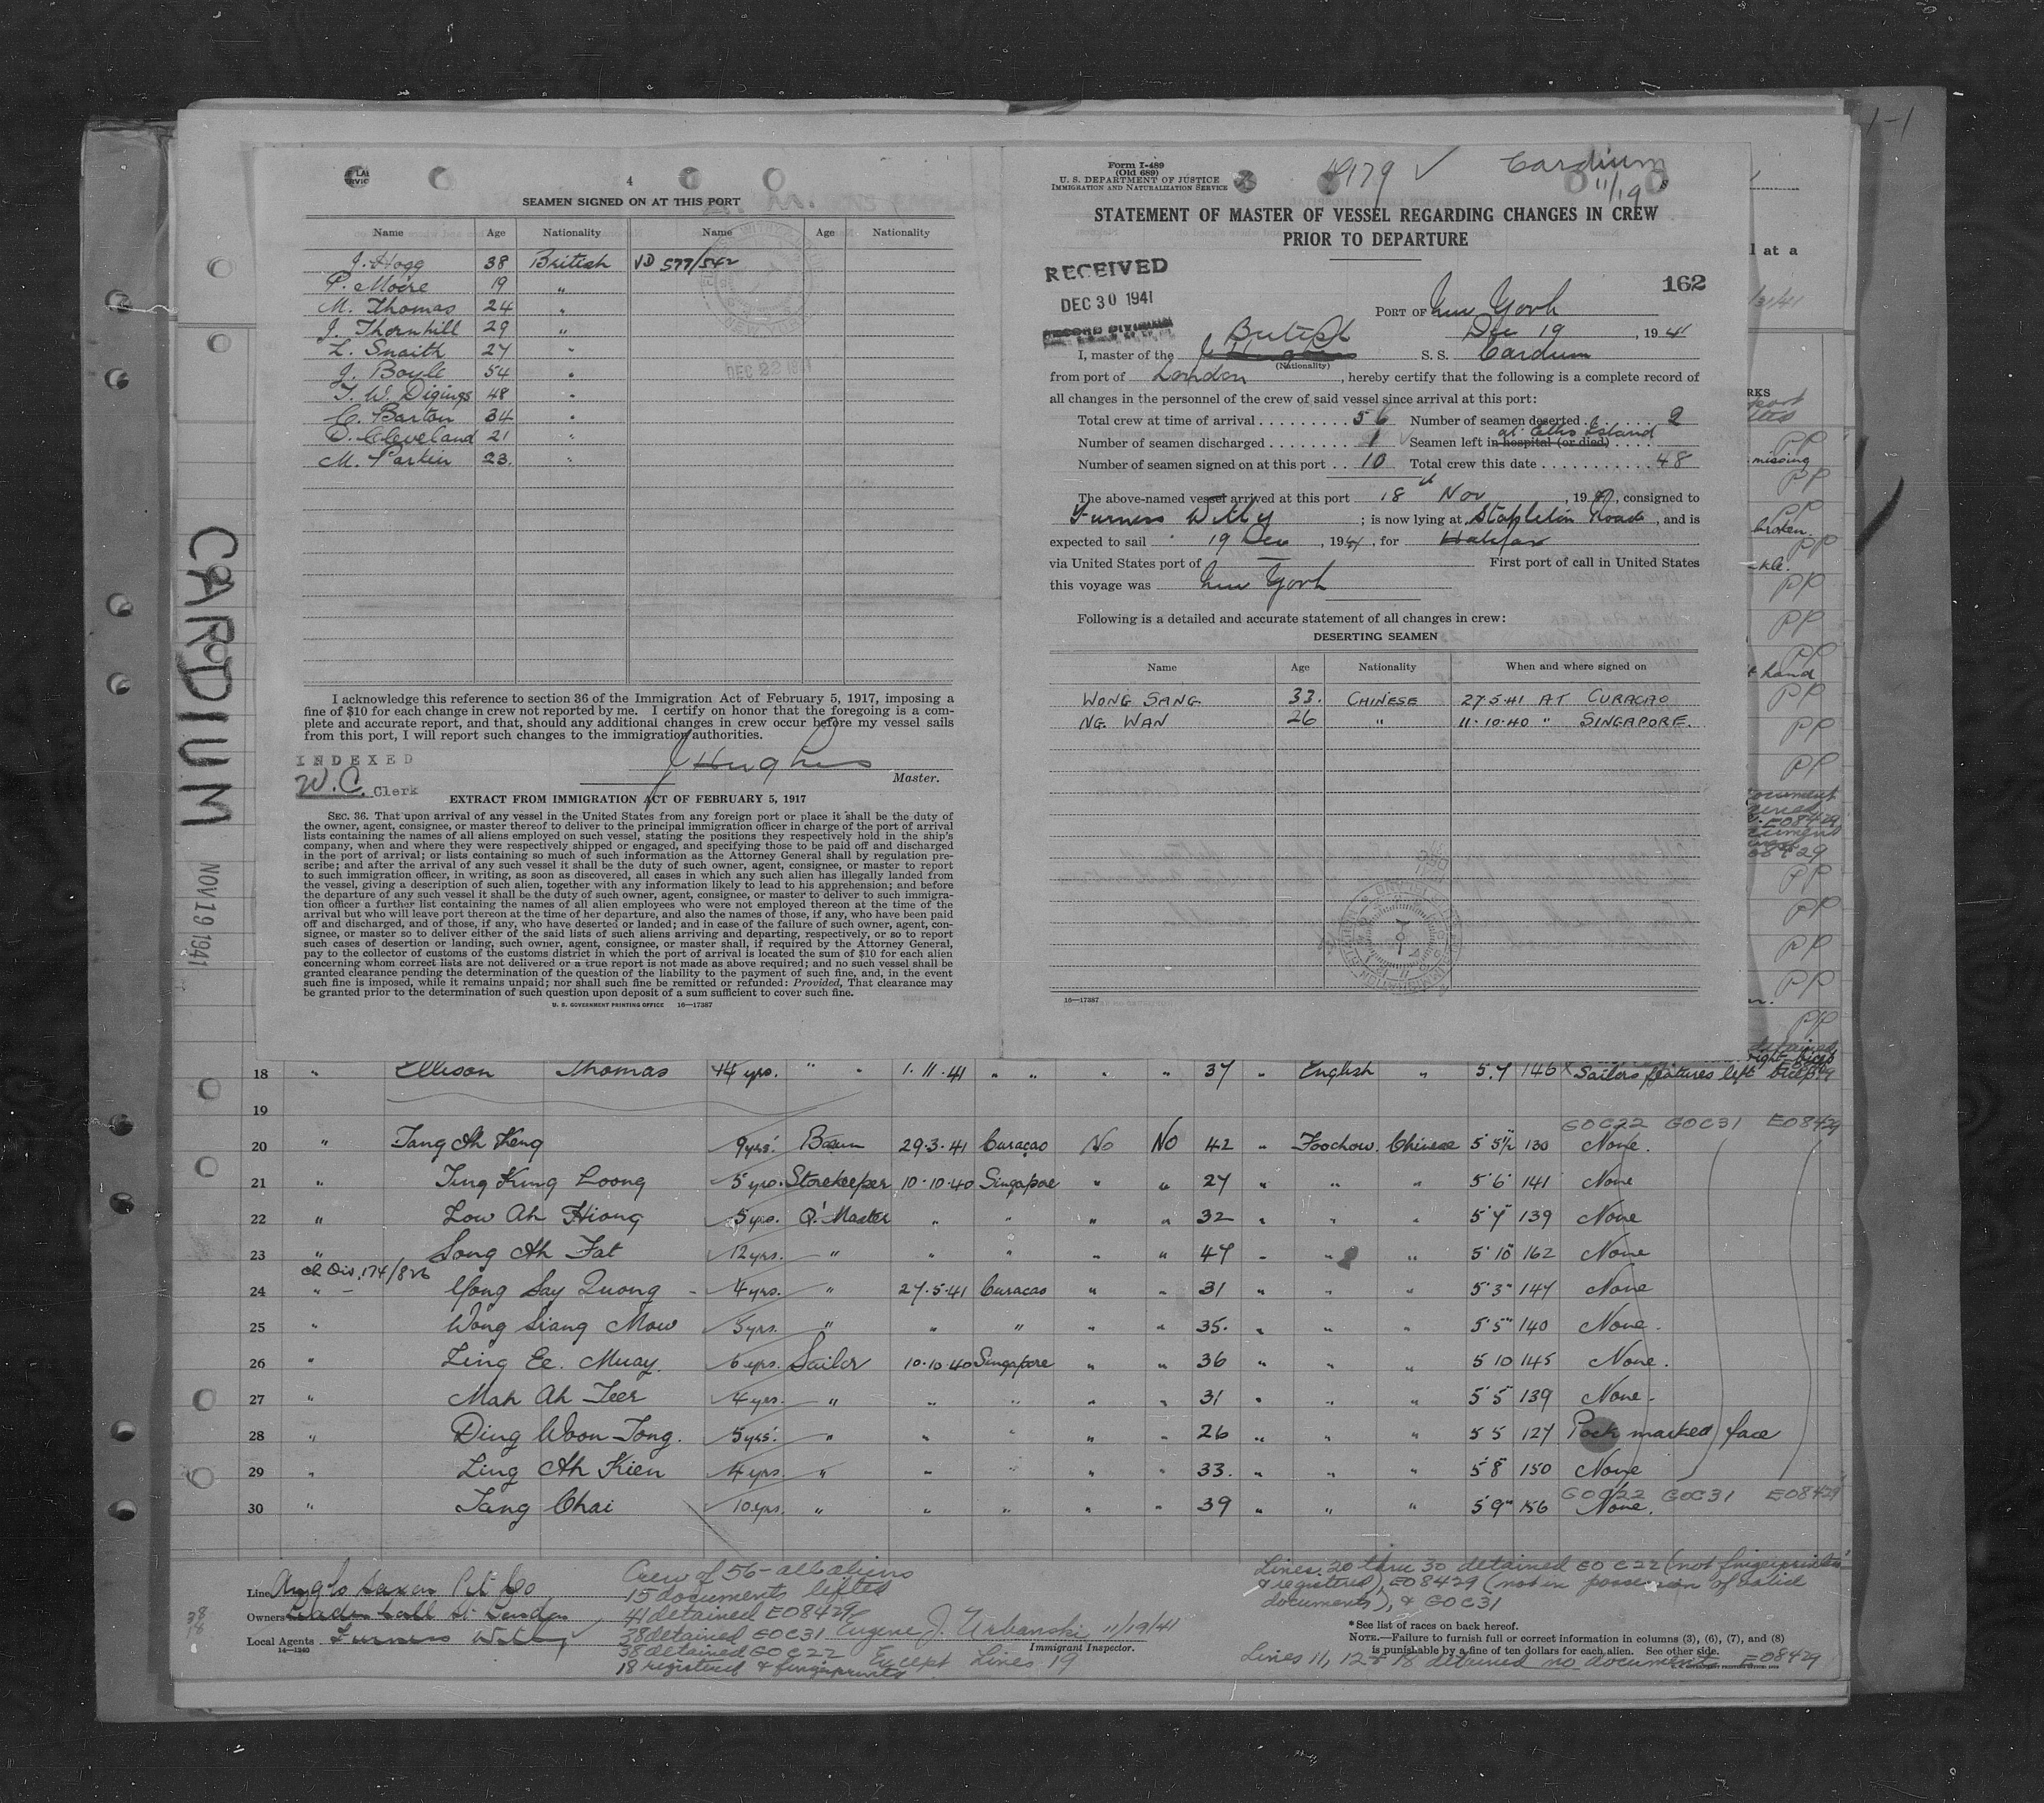 1-1
CARDIUM
NOV 19 1941
4
SEAMEN SIGNED ON AT THIS PORT
Name Age Nationality Name Age Nationality
J. Hogg 38 British VD 577/542
P. Moire 19 "
M. Thomas 24 "
J. Thornhill 29 "
L. Snaith 27 "
J. Boyle 54 "
T. W. Digings 48 "
C. Barton 34 "
D. Cleveland 21 "
M. Parkin 23. "
DEC 22 1941
I acknowledge this reference to section 36 of the Immigration Act of February 5, 1917, imposing a
fine of $10 for each change in crew not reported by me. I certify on honor that the foregoing is a com-
plete and accurate report, and that, should any additional changes in crew occur before my vessel sails
from this port, I will report such changes to the immigration authorities.
INDEXED
W.C. Clerk
J Hughes
Master.
EXTRACT FROM IMMIGRATION ACT OF FEBRUARY 5, 1917
SEC. 36. That upon arrival of any vessel in the United States from any foreign port or place it shall be the duty of
the owner, agent, consignee, or master thereof to deliver to the principal immigration officer in charge of the port of arrival
lists containing the names of all aliens employed on such vessel, stating the positions they respectively hold in the ship's
company, when and where they were respectively shipped or engaged, and specifying those to be paid off and discharged
in the port of arrival; or lists containing so much of such information as the Attorney General shall by regulation pre-
scribe; and after the arrival of any such vessel it shall be the duty of such owner, agent, consignee, or master to report
to such immigration officer, in writing, as soon as discovered, all cases in which any such alien has illegally landed from
the vessel, giving a description of such alien, together with any information likely to lead to his apprehension; and before
the departure of any such vessel it shall be the duty of such owner, agent, consignee, or master to deliver to such immigra-
tion officer a further list containing the names of all alien employees who were not employed thereon at the time of the
arrival but who will leave port thereon at the time of her departure, and also the names of those, if any, who have been paid
off and discharged, and of those, if any, who have deserted or landed; and in case of the failure of such owner, agent, con-
signee, or master so to deliver either of the said lists of such aliens arriving and departing, respectively, or so to report
such cases of desertion or landing, such owner, agent, consignee, or master shall, if required by the Attorney General,
pay to the collector of customs of the customs district in which the port of arrival is located the sum of $10 for each alien
concerning whom correct lists are not delivered or a true report is not made as above required; and no such vessel shall be
granted clearance pending the determination of the question of the liability to the payment of such fine, and, in the event
such fine is imposed, while it remains unpaid; nor shall such fine be remitted or refunded: Provided, That clearance may
be granted prior to the determination of such question upon deposit of a sum sufficient to cover such fine.
U. S. GOVERNMENT PRINTING OFFICE 16—17387
Form I-489
(Old 689)
U. S. DEPARTMENT OF JUSTICE
IMMIGRATION AND NATURALIZATION SERVICE
4979 ✓
Cardium
11/19
STATEMENT OF MASTER OF VESSEL REGARDING CHANGES IN CREW
PRIOR TO DEPARTURE
RECEIVED
DEC 30 1941
RECORD DIVISION
162
PORT OF New York
Dec 19, 1941
I, master of the British S. S. Cardium
(Nationality)
from port of London, hereby certify that the following is a complete record of
all changes in the personnel of the crew of said vessel since arrival at this port:
Total crew at time of arrival 56 Number of seamen deserted 2
Number of seamen discharged 1 Seamen left in hospital (or died) at Ellis Island
Number of seamen signed on at this port 10 Total crew this date 48
The above-named vessel arrived at this port 18th Nov, 1941, consigned to
Furness Withy; is now lying at Stapleton Roads, and is
expected to sail 19 Dec, 1941, for Halifax
via United States port of — First port of call in United States
this voyage was New York
Following is a detailed and accurate statement of all changes in crew:
DESERTING SEAMEN
Name Age Nationality When and where signed on
WONG SANG 33. CHINESE 27-5-41 AT CURACAO
NG WAN 26 " 11-10-40 " SINGAPORE.
16—17387
18 " Ellison Thomas 14 yrs. " " 1.11.41 " " " " 37 " English " 5.7 146 Sailors features left bicep
19
GOC22 GOC31 EO8429
20 " Tang Ah Keng 9yrs. Bosun 29.3.41 Curaçao No No 42 " Foochow. Chinese 5 5½ 130 None.
21 " Ting Kung Loong 5 yrs. Storekeeper 10.10.40 Singapore " " 27 " " " 5'6" 141 None
22 " Low Ah Hiong 5yrs. Q'Master " " " " 32 " " " 5'7" 139 None
23 " Song Ah Fat 12yrs. " " " " " 47 " " " 5'10" 162 None
24 " Yong Say Quong 4yrs. " 27.5.41 Curacao " " 31 " " " 5'3" 147 None
25 " Wong Siang Mow 5yrs. " " " " " 35. " " " 5'5" 140 None.
26 " Ling Ee. Muay. 6 yrs. Sailor 10.10.40 Singapore " " 36 " " " 5 10 145 None.
27 " Mah Ah Teer 4 yrs. " " " " " 31 " " " 5'5" 139 None.
28 " Ding Woon Tong. 5yrs. " " " " " 26 " " " 5 5 127 Pock marked face
29 " Ling Ah Kien 4 yrs. " " " " " 33. " " " 5'8" 150 None
GOC22 GOC31 EO8429
30 " Tang Chai 10yrs. " " " " " 39 " " " 5'9" 156 None.
Line Anglo Saxon Pet Co
Owners Leaden hall St London
Local Agents Furness Withy
14—1240
Crew of 56 - all aliens
15 documents lifted
41 detained EO8429
38 detained EOC31 Eugene J. Urbanski 11/19/41
Immigrant Inspector.
38 detained GOC22 Except Lines 19
18 registered & fingerprinted
Lines 20 thru 30 detained EO C22 (not fingerprinted
& registered), EO8429 (not in possession of valid
documents), & GOC31
*See list of races on back hereof.
NOTE.—Failure to furnish full or correct information in columns (3), (6), (7), and (8)
is punishable by a fine of ten dollars for each alien. See other side.
Lines 11, 12 & 18 detained no documents EO8429